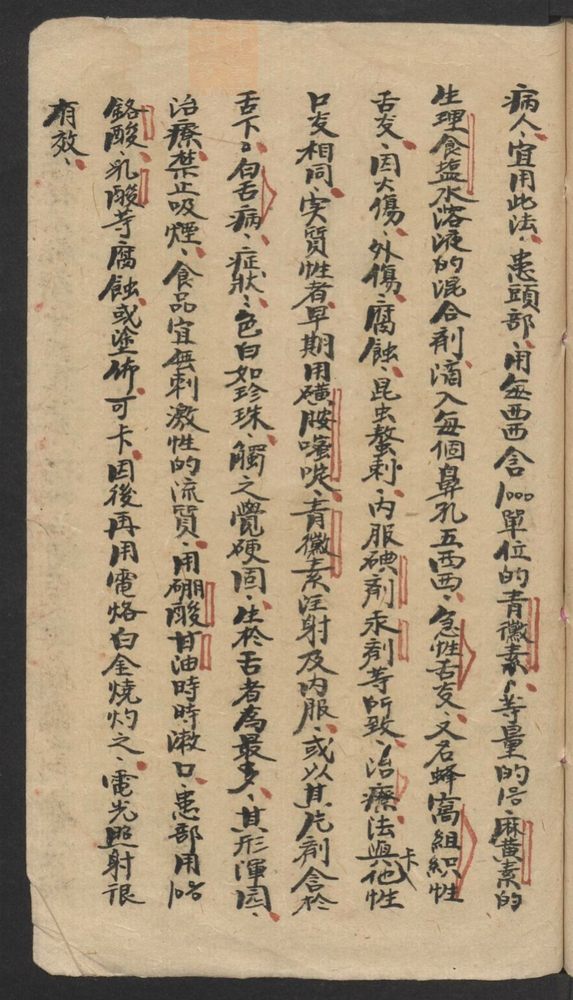 病人、宜用此法、患頭部、用每西西含1000單位的青黴素、等量的1%麻黄素的
生理食盐水溶液的混合剂、滴入每個鼻孔五西西、急性舌炎、又名蜂窩組織性
舌炎、因火傷、外傷、腐蝕、昆虫螫刺、内服碘剤汞剤等所致、治療法與他卡性
口炎相同、实質性者早期用磺胺噻唑、青黴素注射及内服、或以其片剤含於
舌下、白舌病、症狀、色白如珍珠、觸之覺硬固、生於舌者為最多、其形渾圆、
治療禁止吸煙、食品宜無刺激性的流質、用硼酸甘油時時漱口、患部用10%
鉻酸、乳酸等腐蝕或塗佈、可卡因後再用電烙白金燒灼之、電光照射很
有效、